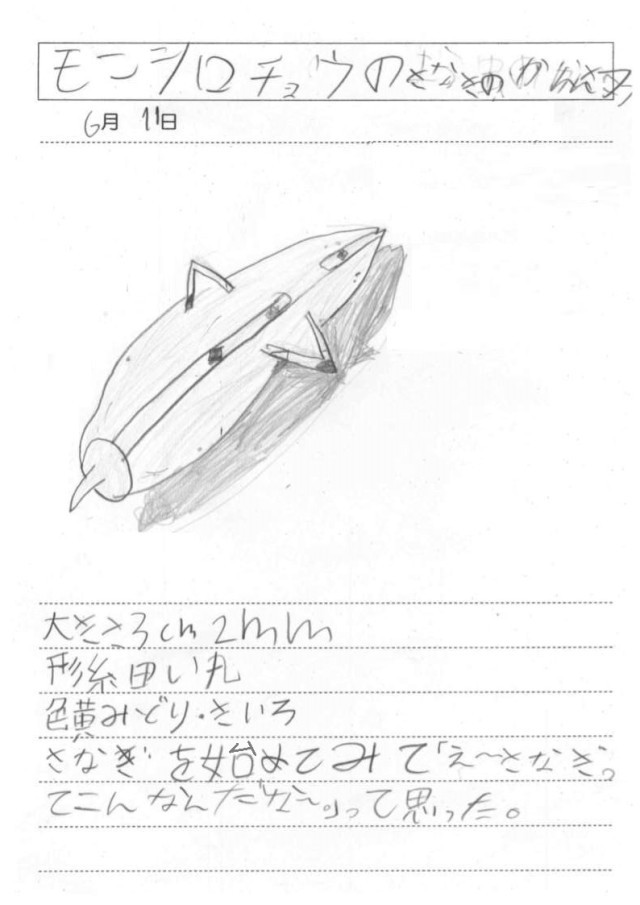 モンシロチョウのさなぎのかんさつ
6月 11日
大きさ3cm2mm
形細い丸
色黄みどり・きいろ
さなぎを始めてみて「え〜さなぎっ
てこんなんだな〜。」って思った。